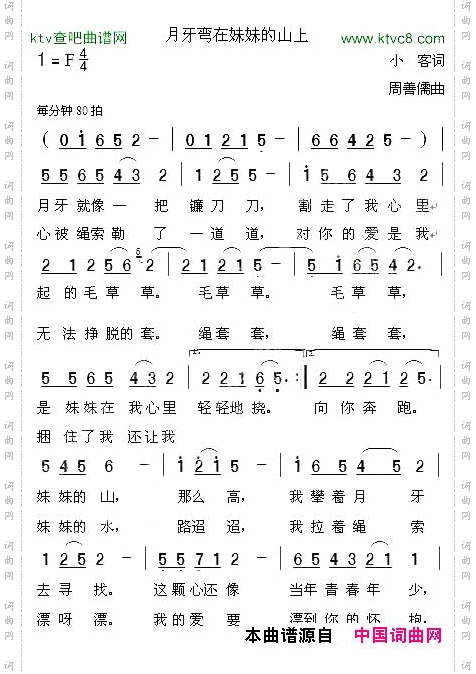 ktv查吧曲谱网 月牙弯在妹妹的山上 www.ktvc8.com
1 = F 4/4 小 客词
周善儒曲
每分钟 80 拍
( 0 1 6 5 2 - | 0 1 2 1 5 - | 6 6 4 2 5 - )
5 5 6 5 4 3 2 | 1 2 5 5 - | 1 5 6 4 3 2
月牙就像一 把 镰刀刀, 割走了我心里
心被绳索勒 了 一道道, 对你的爱是我
2 1 2 5 6 6 2 | 2 1 2 1 5 - | 5 1 6 5 4 2.
起的毛草草。 毛草草。 毛草草,
无法挣脱的套。 绳套套, 绳套套,
5 5 6 5 4 3 2 | 2 2 2 1 6 5 :| 2 2 2 2 1 2 5
是 妹妹在 我心里 轻轻地挠。 向你奔 跑。
捆 住了我 还让我
5 4 5 6 - | 1 2 1 5 - | 1 6 5 4 5 2
妹妹的山, 那么 高, 我攀着月 牙
妹妹的水, 路迢 迢, 我拉着绳 索
1 2 5 2 - | 5 5 7 1 2 - | 6 5 4 3 2 1 1
去寻找。 这颗心还像 当年青春年 少,
漂呀漂。 我的爱要 漂到你的怀 抱。
本曲谱源自 中国词曲网
词曲网